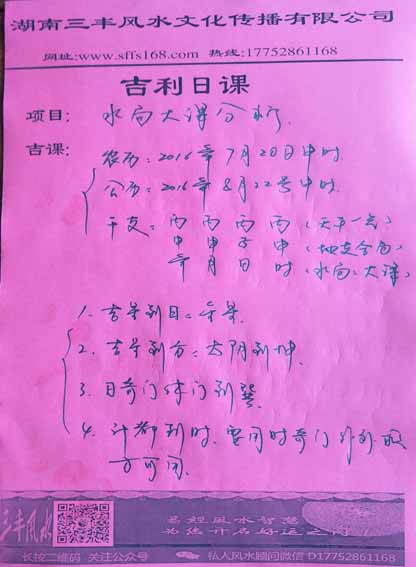 湖南三丰风水文化传播有限公司
网址:www.sffs168.com 热线:17752861168
吉利日课
项目: 水局大课分析.
吉课: 农历:2016年7月20日申时.
公历:2016年8月22号申时.
干支:丙 丙 丙 丙 (天干一气)
申 申 子 申 (地支合局)
年 月 日 时 (水局:大课)
1. 吉星到日:
2. 吉星到方:太阴到坤
3. 日奇门休门到巽
4. 计都到时,要用时奇门
方可用
三丰风水
易经风水智慧
为您开启好运之门
长按二维码 关注公众号
私人风水顾问微信 D17752861168